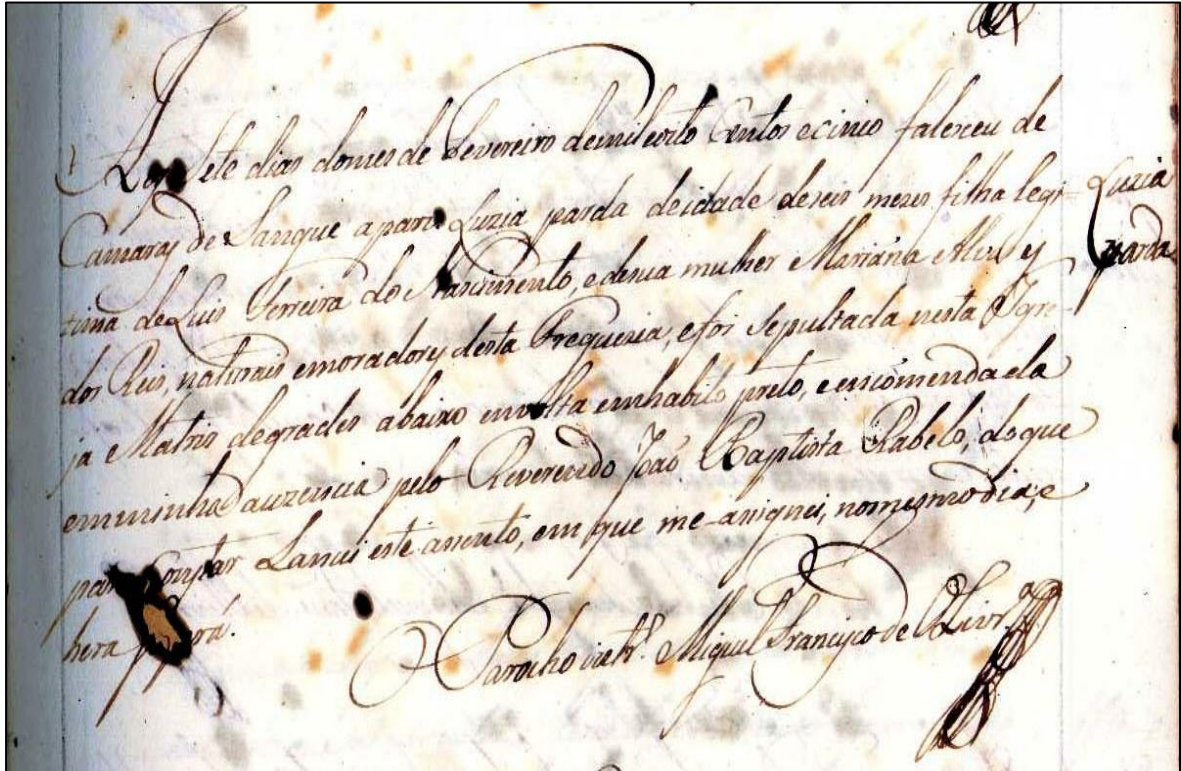 Aos sete dias do mes de Fevereiro de mil e oito Centos e cinco faleceu de
Camaras de Sangue a parv Luzia parda de idade de seis mezes filha legi-
tima de Luis Ferreira do Nascimento, e de sua mulher Marianna Alves
dos Reis, naturais e moradores desta Freguezia, e foi Sepultada nesta Igre-
ja Matris de grades abaixo envolta em habito preto, e encomendada
em minha auzencia pelo Reverendo João Baptista Rabelo, do que
para Constar Lancei este assento, em que me assignei, no mesmo dia, e
hera
O Parocho Miguel Francisco de Olivr.ª
Luzia
parda